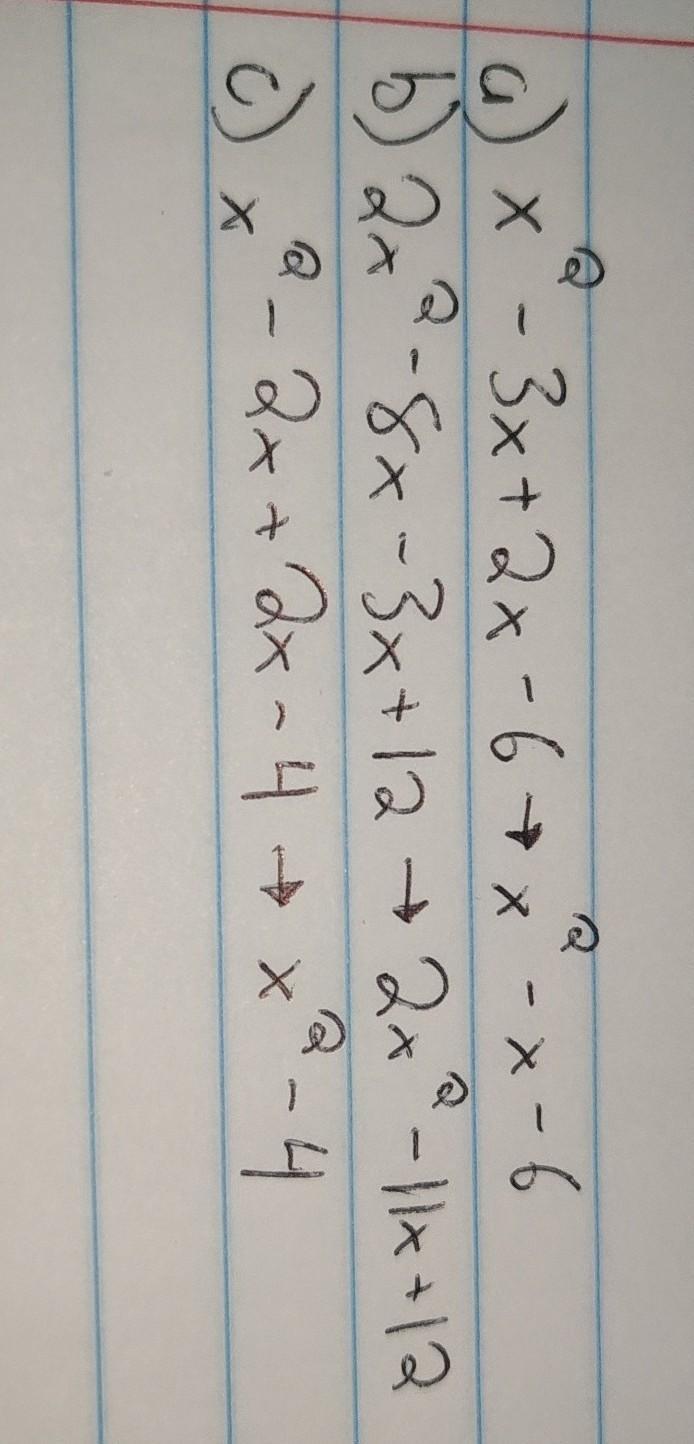 a) x² - 3x + 2x - 6 → x² - x - 6
b) 2x² - 8x - 3x + 12 → 2x² - 11x + 12
c) x² - 2x + 2x - 4 → x² - 4